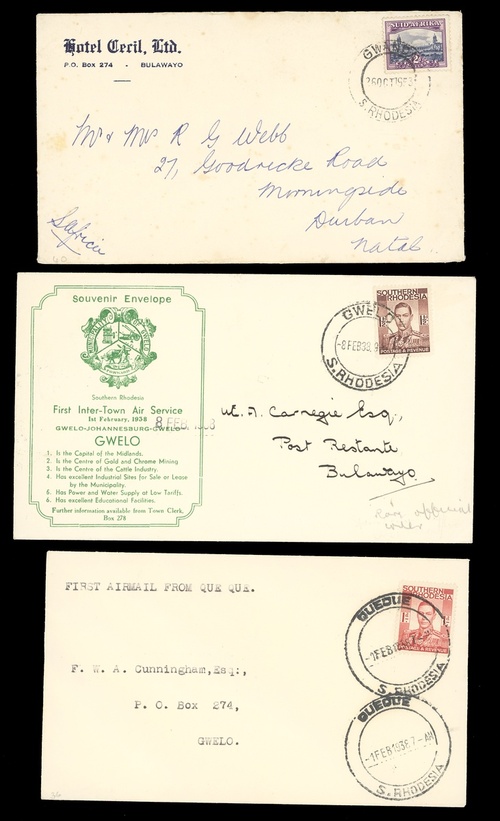 Hotel Cecil, Ltd.
P.O. Box 274 - BULAWAYO
SUID-AFRIKA
2
S. RHODESIA
Mr & Mrs R G Webb
27, Goodricke Road
Morningside
Durban
Natal.
S africa
Souvenir Envelope
MUNICIPALITY OF GWELO
Southern Rhodesia
First Inter-Town Air Service
1st February, 1938
GWELO-JOHANNESBURG-GWELO
GWELO
1. Is the Capital of the Midlands.
2. Is the Centre of Gold and Chrome Mining
3. Is the Centre of the Cattle Industry.
4. Has excellent Industrial Sites for Sale or Lease
by the Municipality.
5. Has Power and Water Supply at Low Tariffs.
6. Has excellent Educational Facilities.
Further information available from Town Clerk,
Box 278
SOUTHERN
RHODESIA
1½ 1½
POSTAGE & REVENUE
GWELO
-8FEB38
S. RHODESIA
W. A. Carnegie Esq.,
Post Restante
Bulawayo
official
cover
FIRST AIRMAIL FROM QUE QUE.
SOUTHERN
RHODESIA
1D 1D
POSTAGE & REVENUE
QUEQUE
S. RHODESIA
F. W. A. Cunningham,Esq:,
P. O. Box 274,
GWELO.
QUEQUE
-1FEB1938 7-AM
S. RHODESIA